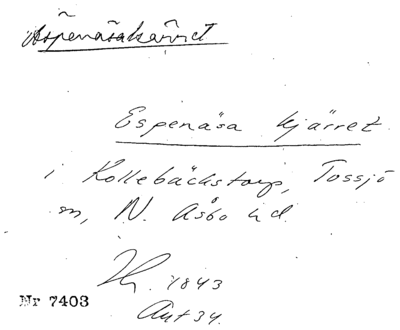 Äspenäsakärret
Espenäsa kjärret
i Kollebäckstorp, Tossjö
sn, N. Åsbo hd.
1843
Nr 7403
Akt 34.